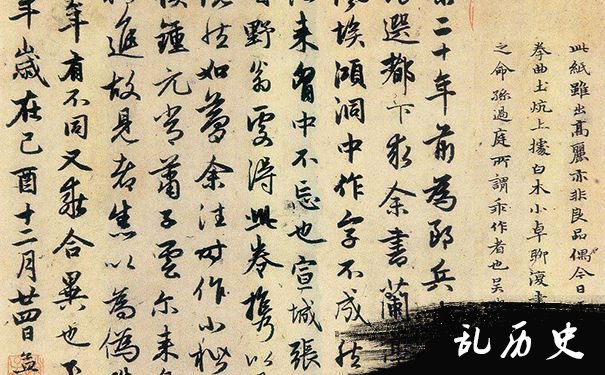 此紙雖出高麗亦非良品偶今日
拳曲土炕上據白木小卓聊復書
之命孫過庭所謂乖作者也吴
二十年前為郎兵
選都下求余書蘭
風埃澒洞中作字不成
来胷中不忘也宣城張
野翁寔得此卷攜以
恍然如夢余往時作小楷
鍾元常蕭子雲尔来
進故見者悉以為僞
年有不同又乖合異也
年歲在己酉十二月廿四日孟
乱历史